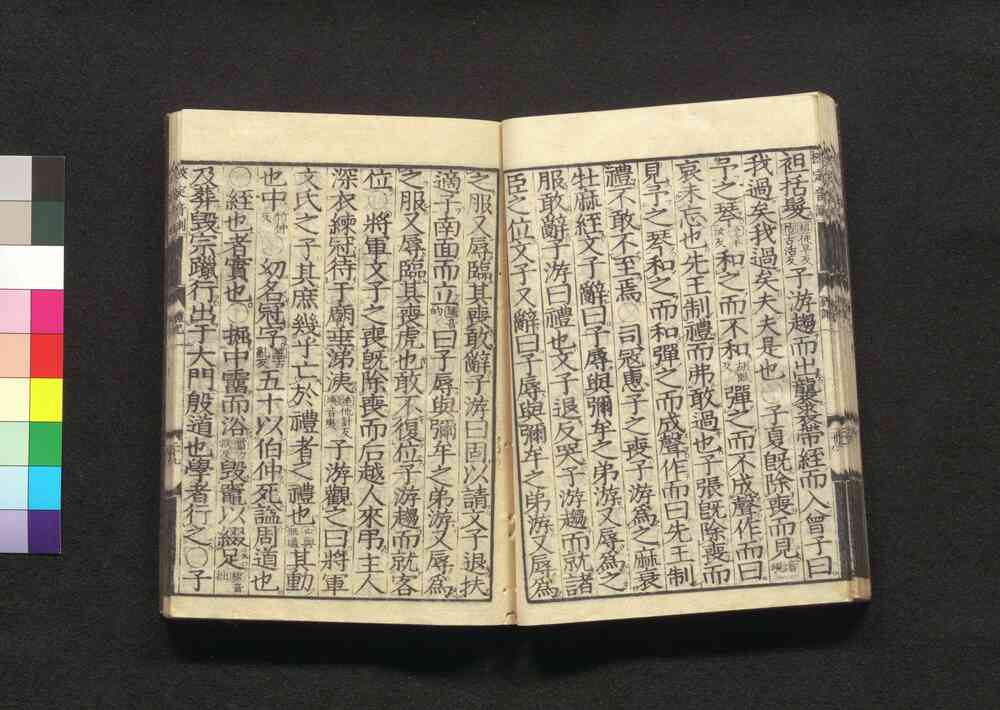 袒括髮子游趨而出襲裘帶絰而入曾子曰
我過矣我過矣夫夫是也○子夏既除喪而見
予之琴和之而不和彈之而不成聲作而曰
哀未忘也先王制禮而弗敢過也子張既除喪而
見予之琴和之而和彈之而成聲作而曰先王制
禮不敢不至焉○司寇惠子之喪子游為之麻衰
牡麻絰文子辭曰子辱與彌牟之弟游又辱為之
服敢辭子游曰禮也文子退反哭子游趨而就諸
臣之位文子又辭曰子辱與彌牟之弟游又辱為
之服又辱臨其喪敢辭子游曰固以請文子退扶
適子南面而立曰子辱與彌牟之弟游又辱為
之服又辱臨其喪虎也敢不復位子游趨而就客
位○將軍文子之喪既除喪而后越人來弔主人
深衣練冠待于廟垂涕洟子游觀之曰將軍
文氏之子其庶幾乎亡於禮者之禮也其動
也中○幼名冠字五十以伯仲死諡周道也
○絰也者實也○掘中霤而浴毀竈以綴足
及葬毀宗躐行出于大門殷道也學者行之○子